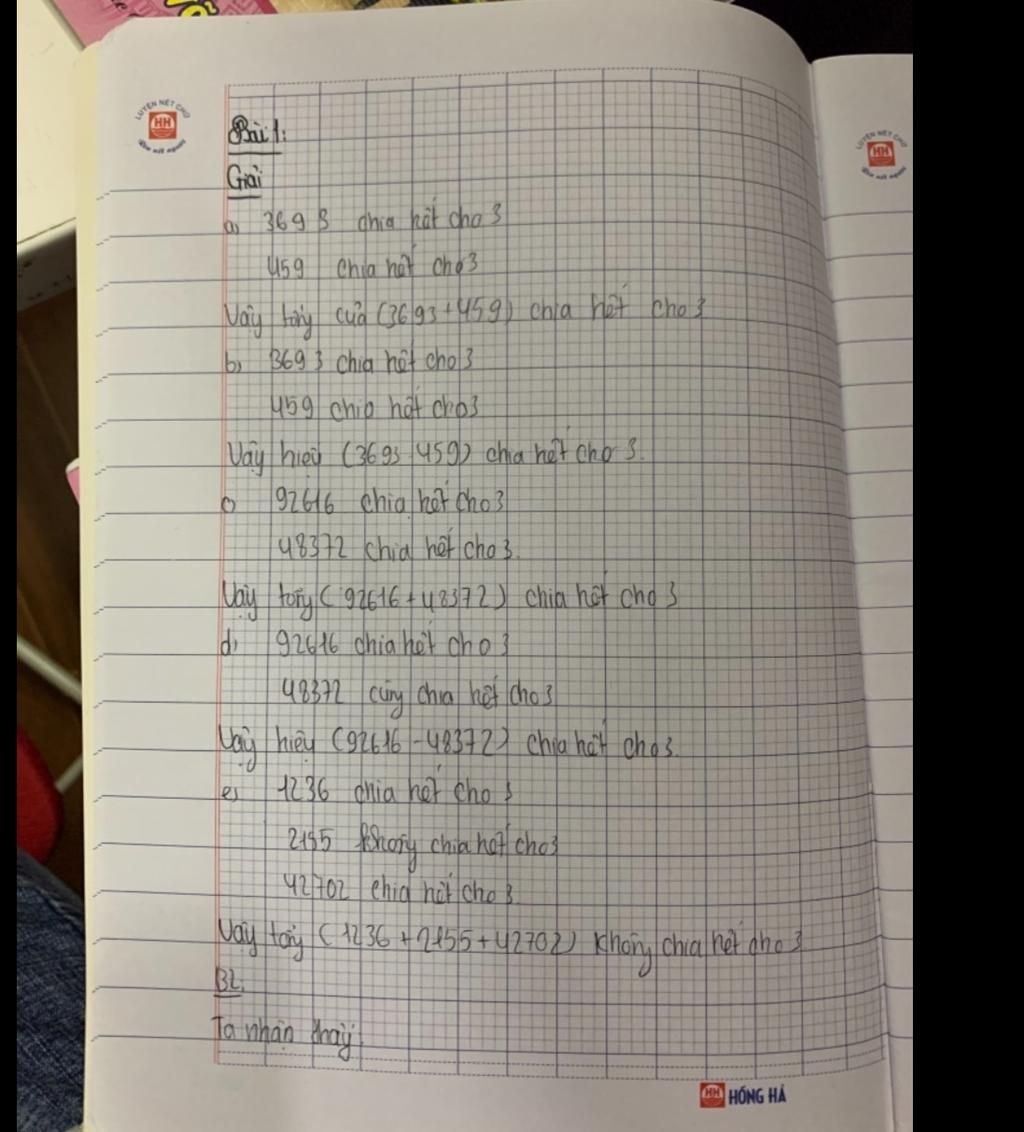 LUYỆN NẾT CHỮ
HH
Rèn nết người
LUYỆN NẾT CHỮ
HH
Rèn nết người
Bài 1:
Giải
a) 3693 chia hết cho 3
459 chia hết cho 3
Vậy tổng của (3693+459) chia hết cho 3
b) 3693 chia hết cho 3
459 chia hết cho 3
Vậy hiệu (3693-459) chia hết cho 3.
c) 92616 chia hết cho 3
48372 chia hết cho 3.
Vậy tổng (92616+48372) chia hết cho 3
d) 92616 chia hết cho 3
48372 cũng chia hết cho 3
Vậy hiệu (92616-48372) chia hết cho 3.
e) 1236 chia hết cho 3
2155 không chia hết cho 3
42702 chia hết cho 3.
Vậy tổng (1236+2155+42702) không chia hết cho 3
B2:
Ta nhận thấy:
HH HỒNG HÀ